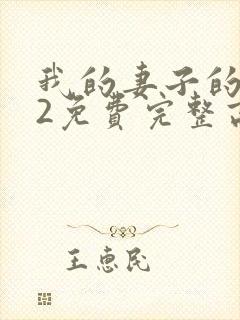 我的妻子的
2免费完整
王惠民